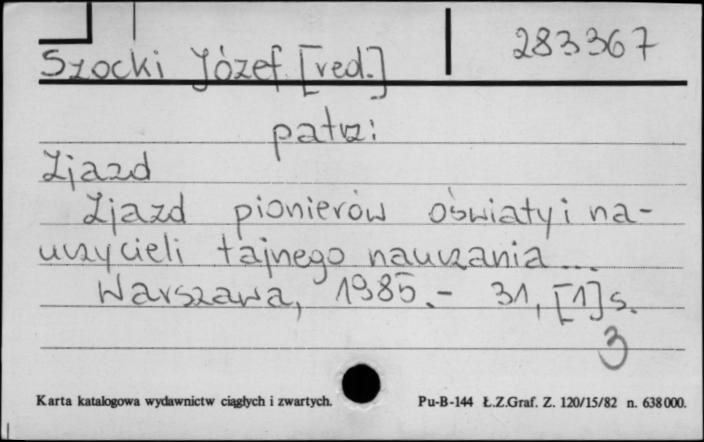 Szocki Józef [red.] 283367
patrz:
Zjazd
Zjazd pionierów oświaty i na-
uczycieli tajnego nauczania...
Warszawa, 1985.- 31, [1] s.
3
Karta katalogowa wydawnictw ciągłych i zwartych. Pu-B-144 Ł.Z.Graf. Z. 120/15/82 n. 638000.